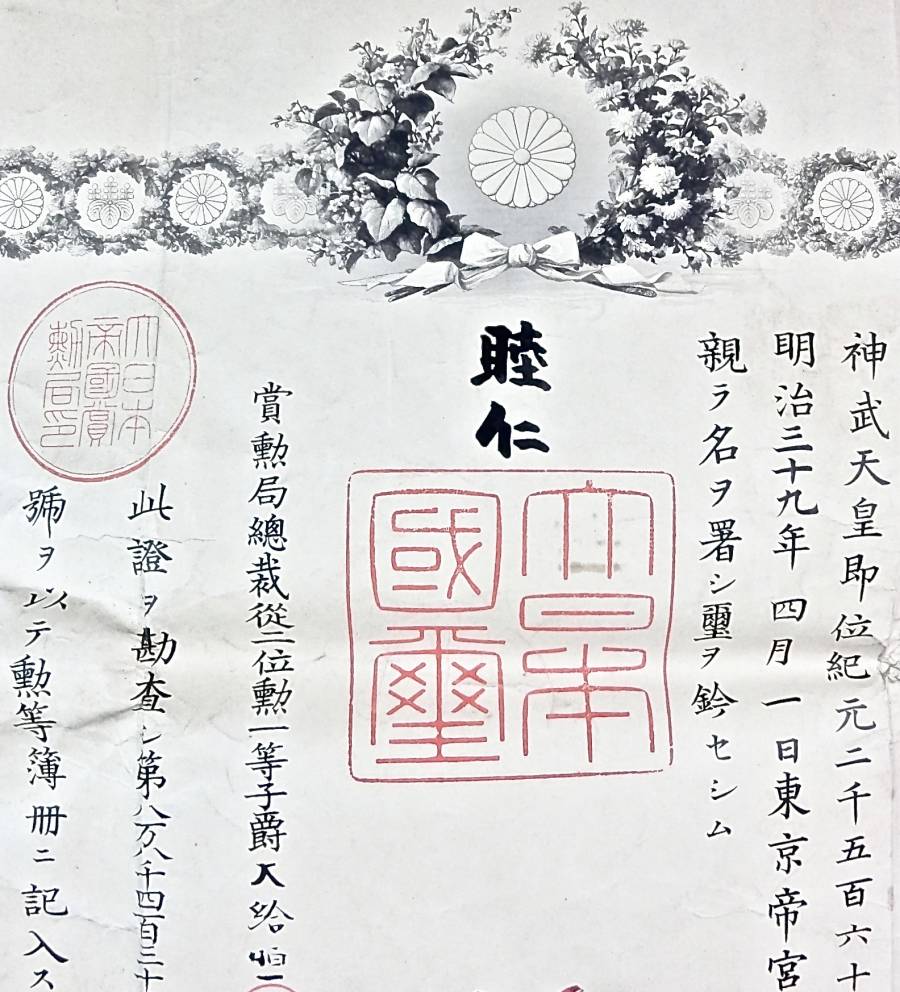 神武天皇即位紀元二千五百六十
明治三十九年四月一日東京帝宮
親ラ名ヲ署シ璽ヲ鈐セシム
睦仁
大日本
國璽
賞勲局總裁從二位勲一等子爵大給恒
此證ヲ勘査シ第八万八千四百三十
號ヲ以テ勲等簿冊ニ記入ス
大日本
帝國賞
勲局印